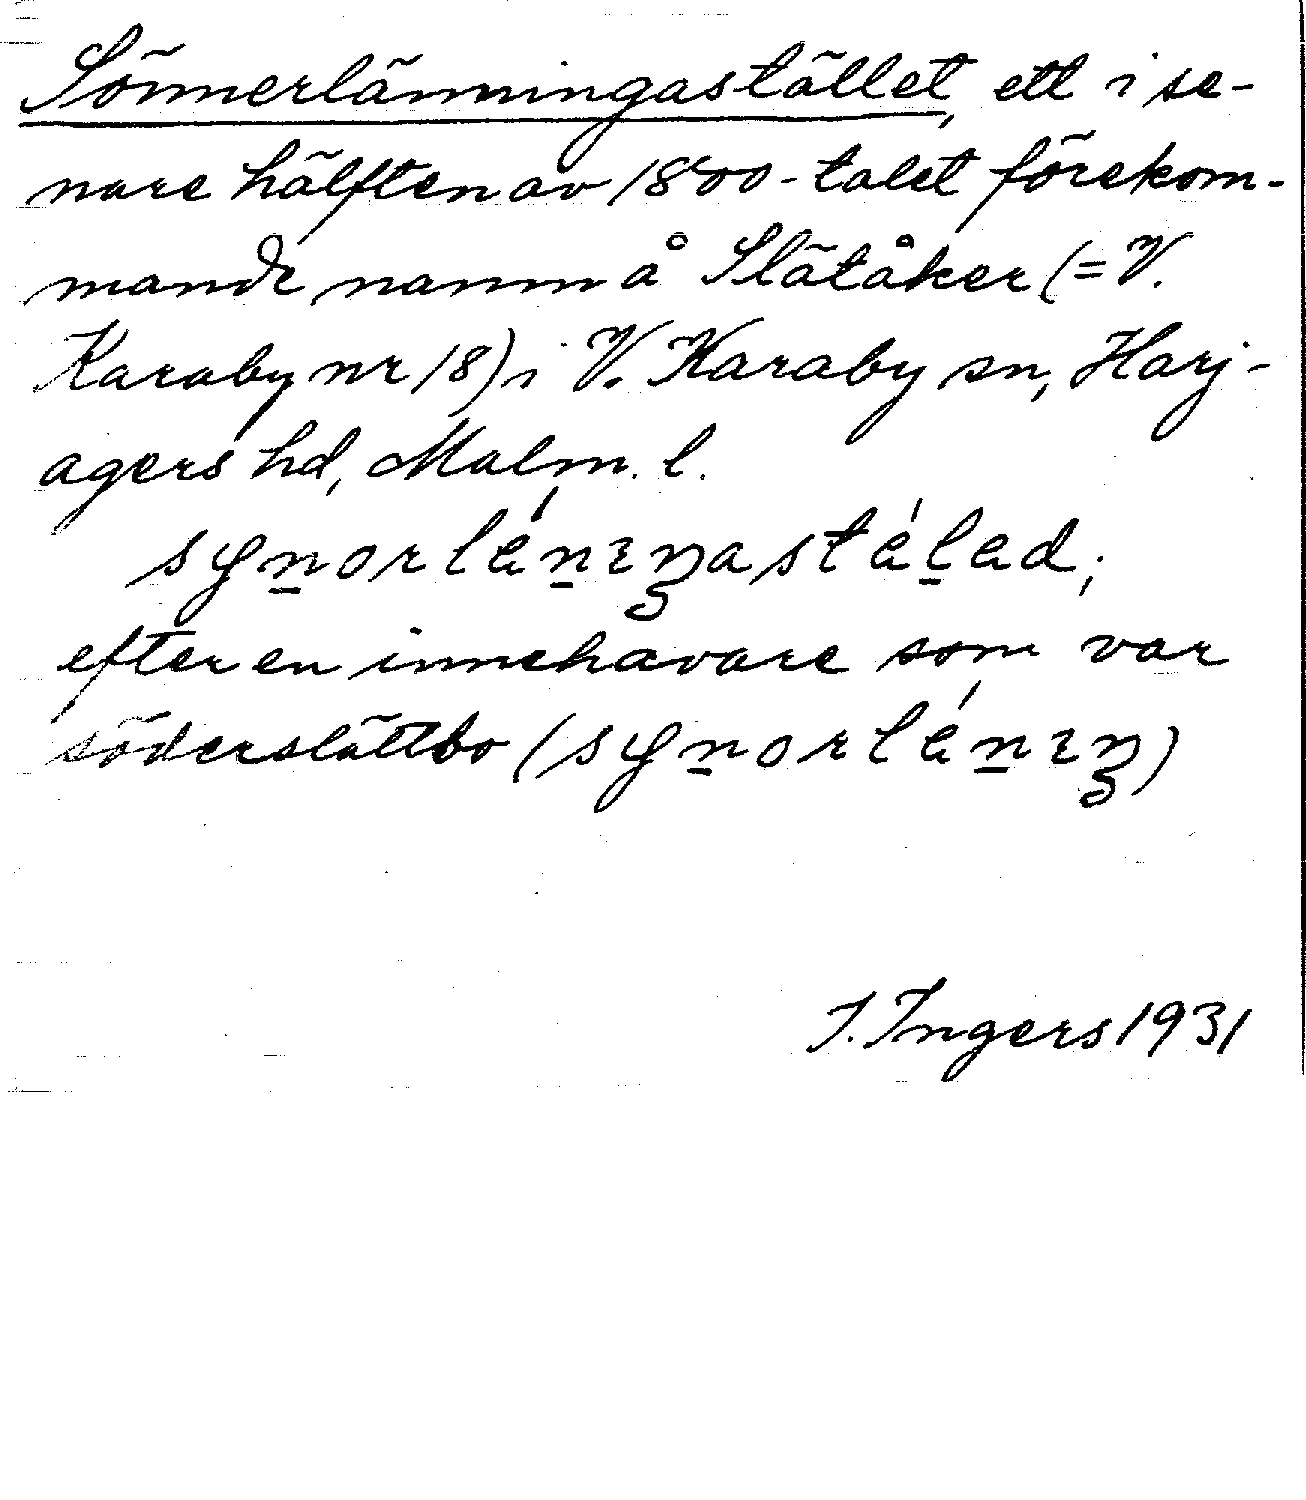 Sönnerlänningastället, ett i se-
nare hälften av 1800-talet förekom-
mande namn å Slätåker (= V.
Karaby nr 18) i V. Karaby sn, Harj-
agers hd, Malm. l.
efter en innehavare som var
söderslättbo
I. Ingers 1931